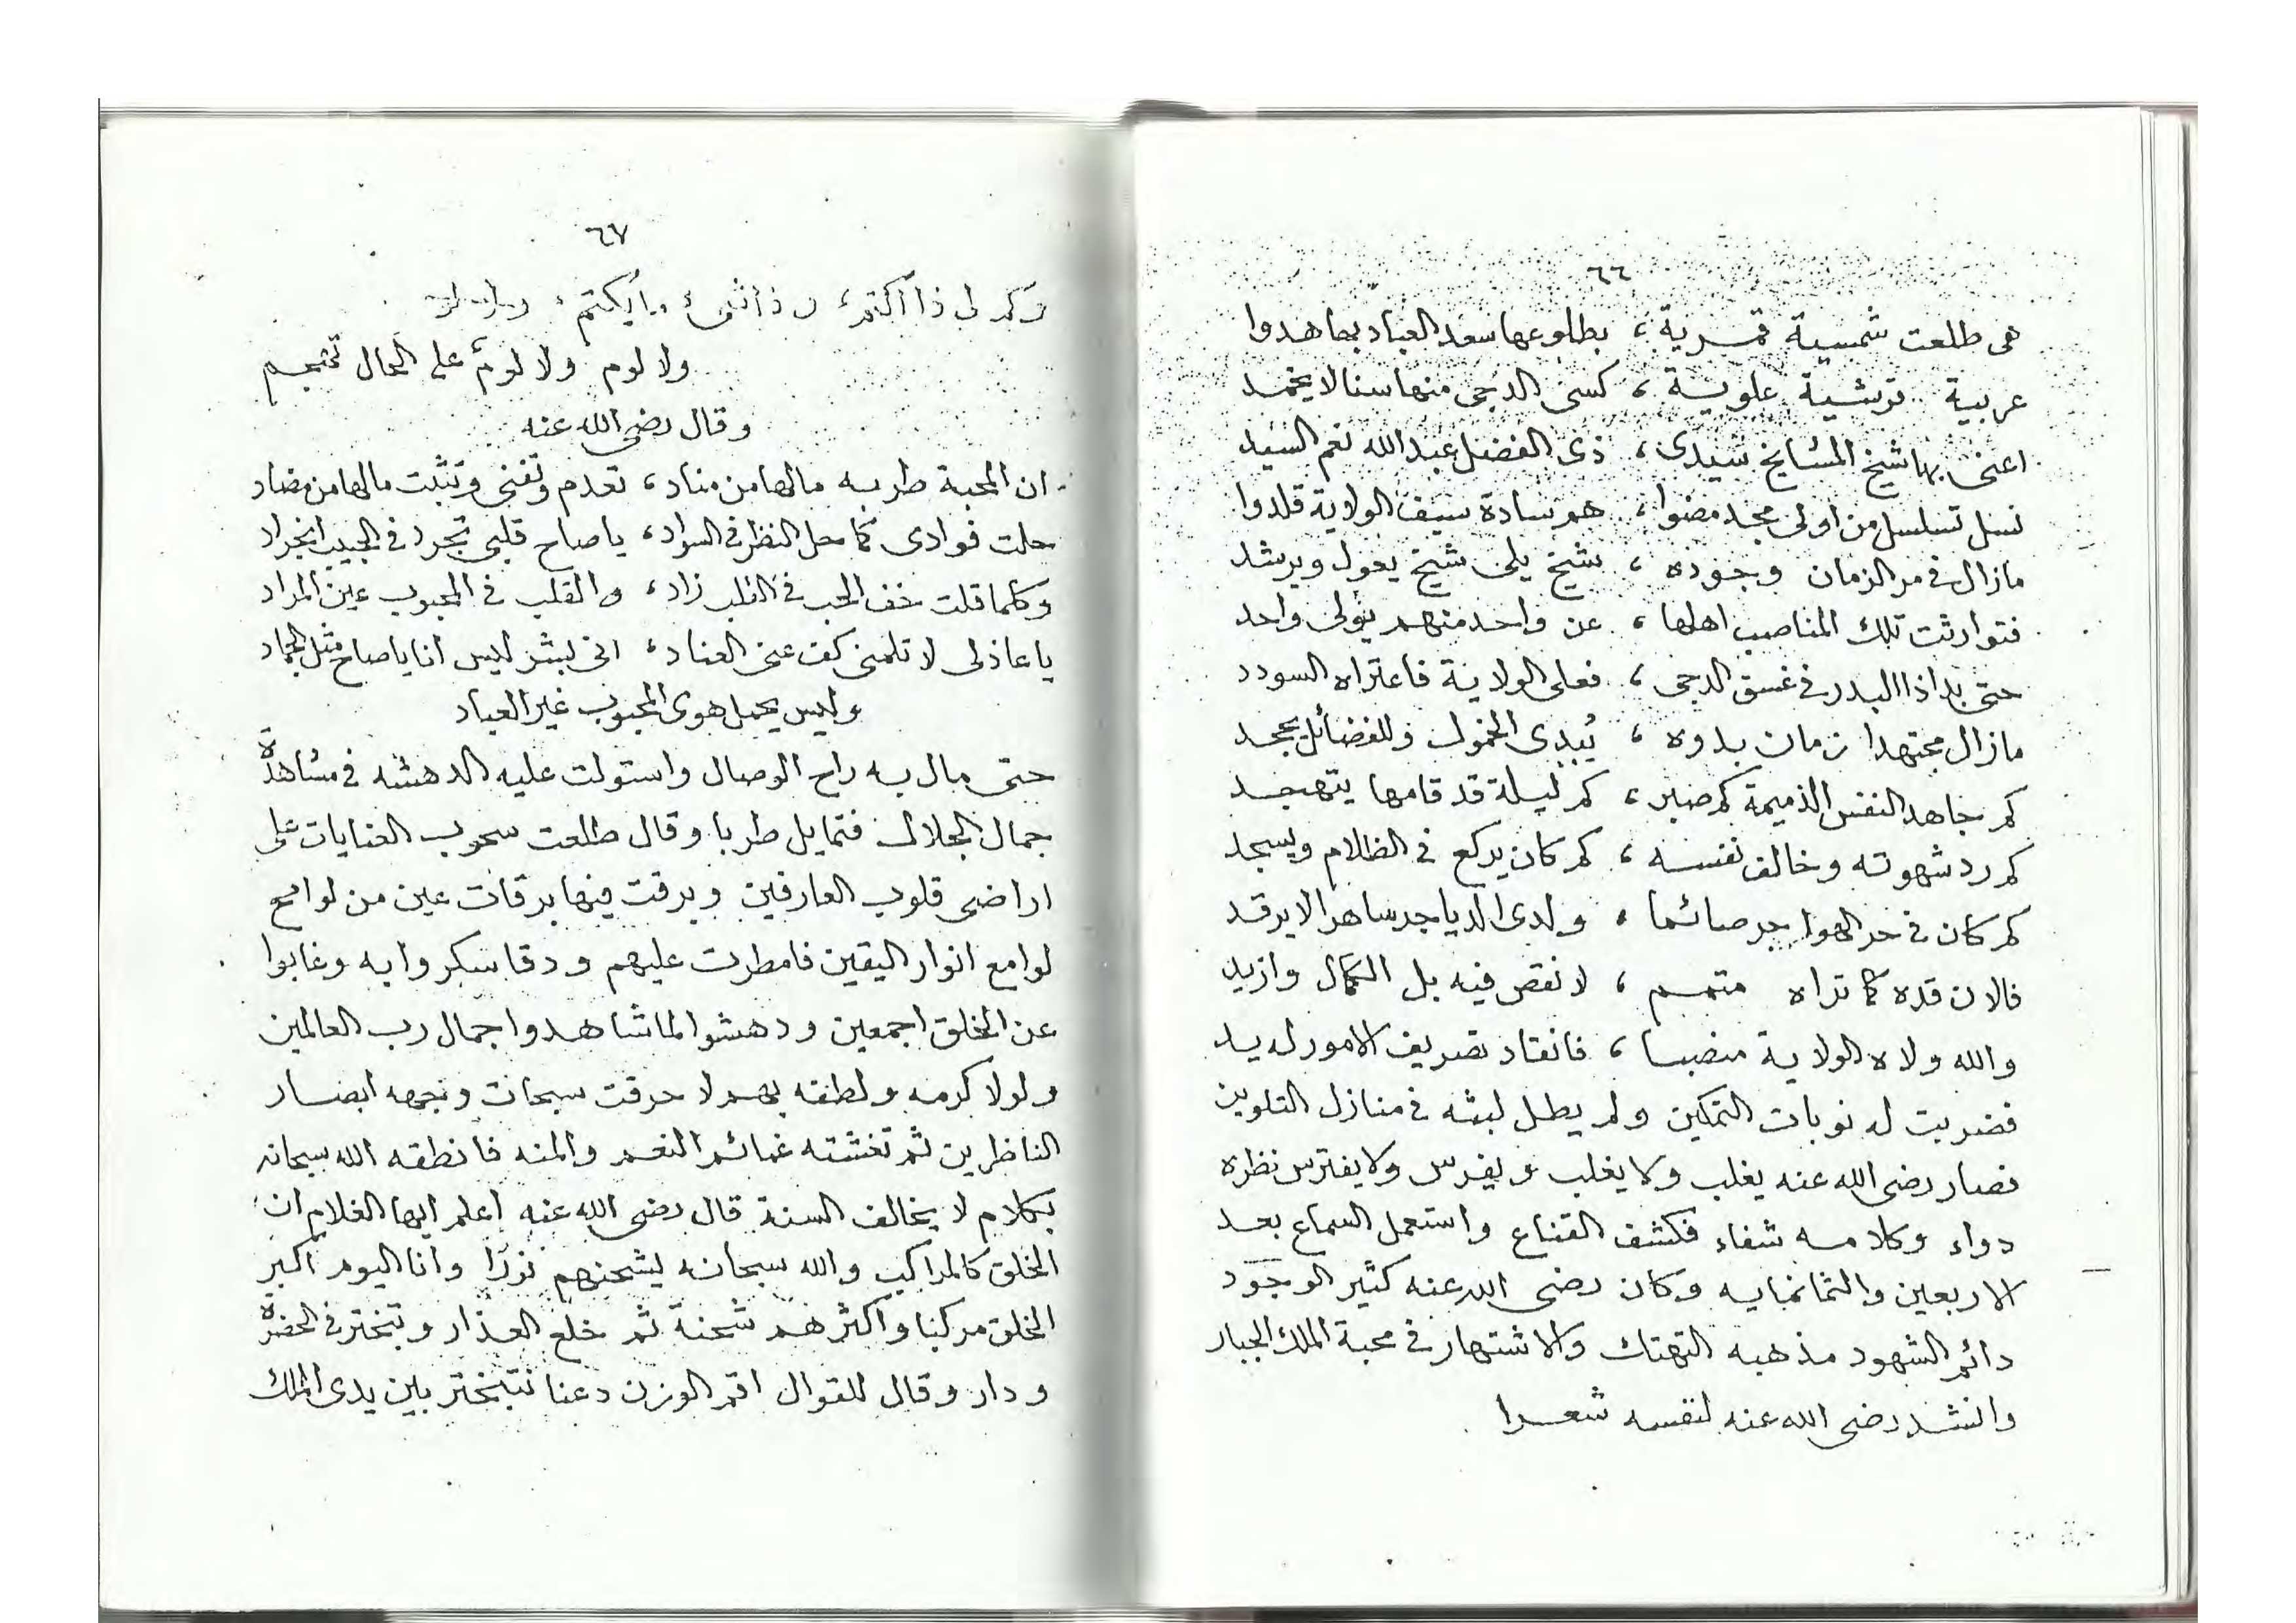 ٦٦
هى طلعت شمسية قمرية ، بطلوعها سعد العباد بها هدوا
عربية قرشية علوية ، كسى الدجى منها سنا لا يخمد
اعنى بها شيخ المشايخ سيدى ، ذى الفضل عبد الله نعم السيد
نسل تسلسل من اولى مجد مضوا ، هم سادة سيف الولاية قلدوا
مازال فى مر الزمان وجوده ، شيخ يلى شيخ يعول ويرشد
فتوارثت تلك المناصب اهلها ، عن واحد منهم يتولى واحد
حتى بدا ذا البدر فى غسق الدجى ، فعلى الولاية فاعتراه السودد
مازال مجتهدا زمان بدوه ، يُبدى الخمول وللفضائل يجحد
كم جاهد النفس الذميمة كم صبر ، كم ليلة قد قامها يتهجد
كم رد شهوته وخالف نفسه ، كم كان يركع فى الظلام ويسجد
كم كان فى حر الهواجر صائما ، ولدى الدياجر ساهرا لا يرقد
فالان قده كما تراه متمم ، لا نقص فيه بل الكمال وازيد
والله ولاه الولاية منصبا ، فانقاد تصريف الامور له يد
فضربت له نوبات التمكين ولم يطل لبثه فى منازل التلوين
فصار رضى الله عنه يغلب ولا يغلب ويفرس ولا يفترس نظره
دواء وكلامه شفاء فكشف القناع واستعمل السماع بعد
الاربعين والثمانمايه وكان رضى الله عنه كثير الوجود
دائم الشهود مذهبه التهتك والاشتهار فى محبة الملك الجبار
وانشد رضى الله عنه لنفسه شعرا
٦٧
وكم لى ذا اكتم ،
ولا لوم ولا لومٌ على الحال تحتجم
وقال رضى الله عنه
ان المحبة طربه مالها من مناد ، تعدم وتفنى وتثبت مالها من مضاد
حلت فوادى كما حل النظر فى السواد ، يا صاح قلبى تجرد فى الحبيب انجراد
وكلما قلت خف الحب فى القلب زاد ، والقلب فى المحبوب عين المراد
يا عاذلى لا تلمنى كف عنى العناد ، انى بشر ليس انا يا صاح مثل الجماد
وليس يحمل هوى المحبوب غير العباد
حتى مال به راح الوصال واستولت عليه الدهشه فى مشاهدة
جمال الجلال فتمايل طربا وقال طلعت سحوب العنايات على
اراضى قلوب العارفين وبرقت فيها برقات عين من لوامع
لوامع انوار اليقين فامطرت عليهم ودقا سكروا به وغابوا
عن الخلق اجمعين ودهشوا لما شاهدوا جمال رب العالمين
ولولا كرمه ولطفه بهم لاحرقت سبحات وجهه ابصار
الناظرين ثم تغشته غمائم النعم والمنه فانطقه الله سبحانه
بكلام لا يخالف السنة قال رضى الله عنه اعلم ايها الغلام ان
الخلق كالمراكب والله سبحانه يشحنهم نورًا وانا اليوم اكبر
الخلق مركبا واكثرهم شحنة ثم خلع العذار وتبختر فى الحضرة
ودار وقال للقوال اقم الوزن دعنا نتبختر بين يدى الملك